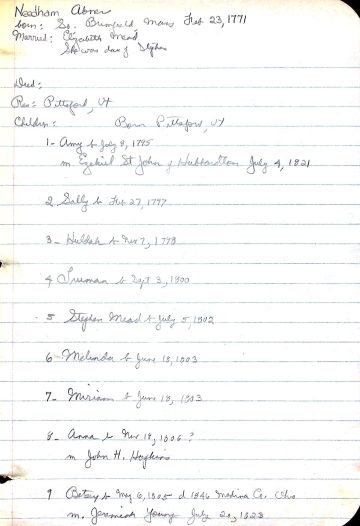 Needham Abner
born: So. Brimfield Mass Feb 23, 1771
Married: Elizabeth Mead
She was dau of Stephen
Died:
Res: Pittsford, Vt
Children: Born Pittsford, Vt
1- Amy b July 8, 1795
m Ezekiel St John of Hubbardton July 4, 1821
2 Sally b Feb 27, 1797
3- Huldah b Nov 7, 1798
4 Truman b Sept 3, 1800
5 Stephen Mead b July 5, 1802
6- Melinda b June 18, 1803
7- Miriam b June 18, 1803
8- Anna b Nov 18, 1806 ?
m John H. Hopkins
9 Betsey b May 6, 1805 d 1846 Medina Co. Ohio
m. Jeremiah Young July 20, 1823